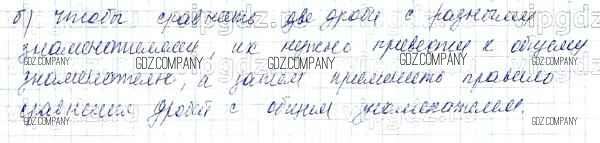 б) Чтобы сравнить две дроби с разными
знаменателями, их нужно привести к общему
знаменателю, а затем применить правило
сравнения дробей с общим знаменателем.
GDZ.COMPANY GDZ.COMPANY GDZ.COMPANY GDZ.COMPANY
GDZ.COMPANY GDZ.COMPANY GDZ.COMPANY GDZ.COMPANY